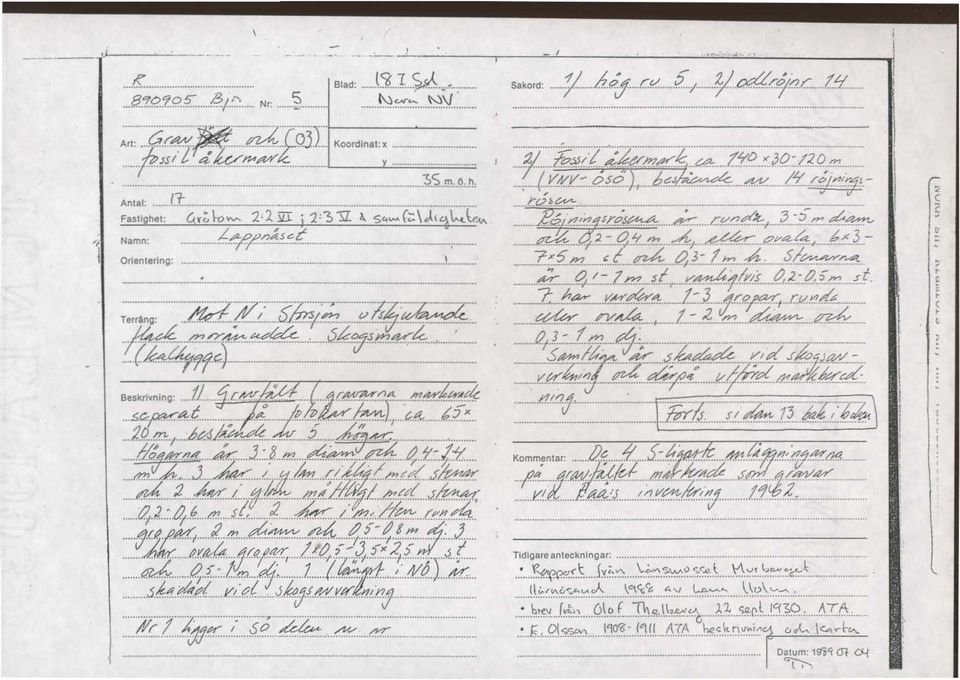 R
890905 Bjn Nr: 5
Blad: 18 I Sol
Nävra NV
Art: Grav och (03)
fossil åkermark
Koordinat: x
y
35 m. ö. h.
Antal: 17
Fastighet: Gråtom 2:2 VI ; 2:3 V & samfälldigheten
Namn: Lappnäset
Orientering:
Terräng: Mot N i Storsjön utskjutande
flack moränudde. Skogsmark.
(kalhygge)
Beskrivning: 1) Gravfält (gravarna markerade
separat på fotokartan) ca 65x
20 m, bestående av 5 högar.
Högarna är 3-8 m diam och 0,4-1,4
m h. 3 har i ytan rikligt med stenar
och 2 har i ytan måttligt med stenar,
0,2-0,6 m st. 2 har i mitten runda
gropar, 2 m diam och 0,5-0,8 m dj. 3
har ovala gropar, 1x0,5-3,5x2,5 m st
och 0,5-1 m dj. 1 (längst i NÖ) är
skadad vid skogsavverkning
Nr 1 ligger i SÖ delen av nr
Sakord: 1) hög ru 5, 2) odlröjnr 14
2) Fossil åkermark, ca 140 x 30-120 m
(VNV-ÖSÖ), bestående av 14 röjnings-
rösen.
Röjningsrösena är runda, 3-5 m diam
och 0,2-0,4 m h, eller ovala, 6x3-
7x5 m st och 0,3-1 m h. Stenarna
är 0,1-1 m st, vanligtvis 0,2-0,5 m st.
7 har vardera 1-3 gropar, runda
eller ovala, 1-2 m diam och
0,3-1 m dj.
Samtliga är skadade vid skogsav-
verkning och därpå utförd markbered-
ning
Forts. sidan 13 bak i boken
Kommentar: De 4 S-ligaste anläggningarna
på gravfältet markerade som gravar
vid Raä:s inventering 1962.
Tidigare anteckningar:
• Rapport från Länsmuseet Murberget
Härnösand 1988 av Lena Holm.
• brev från Olof Thelberg 22 sept 1930. ATA
• E. Olsson 1908-1911 ATA beskrivning och karta
Datum: 1989 07 04